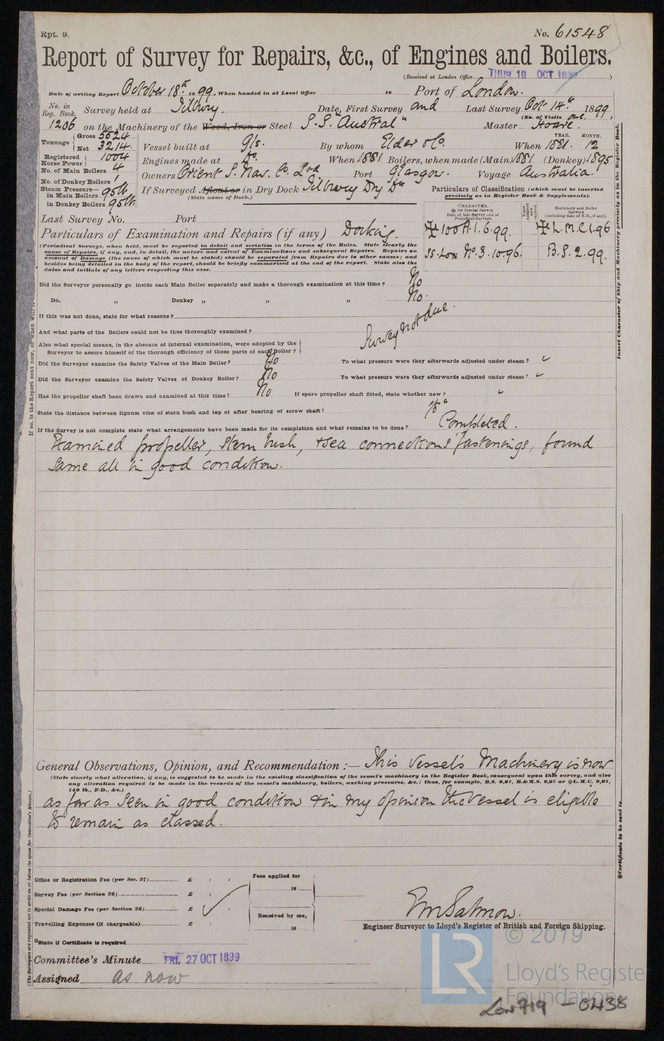 Rpt. 9.
No. 61548
Report of Survey for Repairs, &c., of Engines and Boilers.
(Received at London Office THUR 19 OCT 1899)
Date of writing Report October 18th 1899 When handed in at Local Office 18 Port of London.
No. in Reg. Book. Survey held at Tilbury. Date, First Survey and Last Survey Oct 14th 1899
(No. of Visits one.)
1206 on the Machinery of the Wood, Iron or Steel S.S. "Austral" Master Hoare.
Tonnage Gross 5524
Net 3214
Vessel built at Gls. By whom Elder & Co. When 1881 YEAR. MONTH. 12
Registered Horse Power 1004 Engines made at Do. When 1881 Boilers, when made (Main) 1881 (Donkey) 1895
No. of Main Boilers 4 Owners Orient S. Nav. Co. Ltd Port Glasgow. Voyage Australia.
No. of Donkey Boilers 1
Steam Pressure— in Main Boilers 95lb If Surveyed Afloat or in Dry Dock Tilbury Dry Dk
(State name of Dock.)
in Donkey Boilers 95lb
Particulars of Classification (which must be inserted precisely as in Register Book & Supplements).
Last Survey No. Port
Particulars of Examination and Repairs (if any) Docking.
✠100A1.6.99. ✠L.M.C.1.96
B.S. 2.99.
(Periodical Surveys, when held, must be reported in detail and seriatim in the terms of the Rules. State clearly the
cause of Repairs, if any, and, in detail, the nature and extent of Examinations and subsequent Repairs. Repairs on
account of Damage (the cause of which must be stated) should be separated from Repairs due to other causes; and
besides being detailed in the body of the report, should be briefly summarised at the end of the report. State also the
dates and initials of any letters respecting this case.
Did the Surveyor personally go inside each Main Boiler separately and make a thorough examination at this time? No
Do. " Donkey " " " No.
If this was not done, state for what reasons?
Survey not due.
And what parts of the Boilers could not be thoroughly examined?
Also what special means, in the absence of internal examination, were adopted by the
Surveyor to assure himself of the thorough efficiency of those parts of each Boiler?
Did the Surveyor examine the Safety Valves of the Main Boiler? No To what pressure were they afterwards adjusted under steam?
Did the Surveyor examine the Safety Valves of Donkey Boiler? No To what pressure were they afterwards adjusted under steam?
Has the propeller shaft been drawn and examined at this time? No If spare propeller shaft fitted, state whether new?
State the distance between lignum vitæ of stern bush and top of after bearing of screw shaft?
If the Survey is not complete state what arrangements have been made for its completion and what remains to be done? Completed.
Examined propeller, stern bush, & sea connections fastenings, found
same all in good condition.
General Observations, Opinion, and Recommendation:— This vessel's Machinery is now
(State clearly what alteration, if any, is suggested to be made in the existing classification of the vessel's machinery in the Register Book, consequent upon this survey, and also
any alteration required to be made in the records of the vessel's machinery, boilers, working pressure, &c.
as far as seen in good condition & in my opinion the vessel is eligible
to remain as classed.
Office or Registration Fee (per Sec. 27) £ Fees applied for
Survey Fee (per Section 28) £ 18
Special Damage Fee (per Section 28) £ Received by me,
Travelling Expenses (if chargeable) £ 18
Engineer Surveyor to Lloyd's Register of British and Foreign Shipping.
State if Certificate is required
Committee's Minute FRI. 27 OCT 1899
Assigned as now
LR
© 2019
Lloyd's Register
Foundation
Lon 719 - 0438